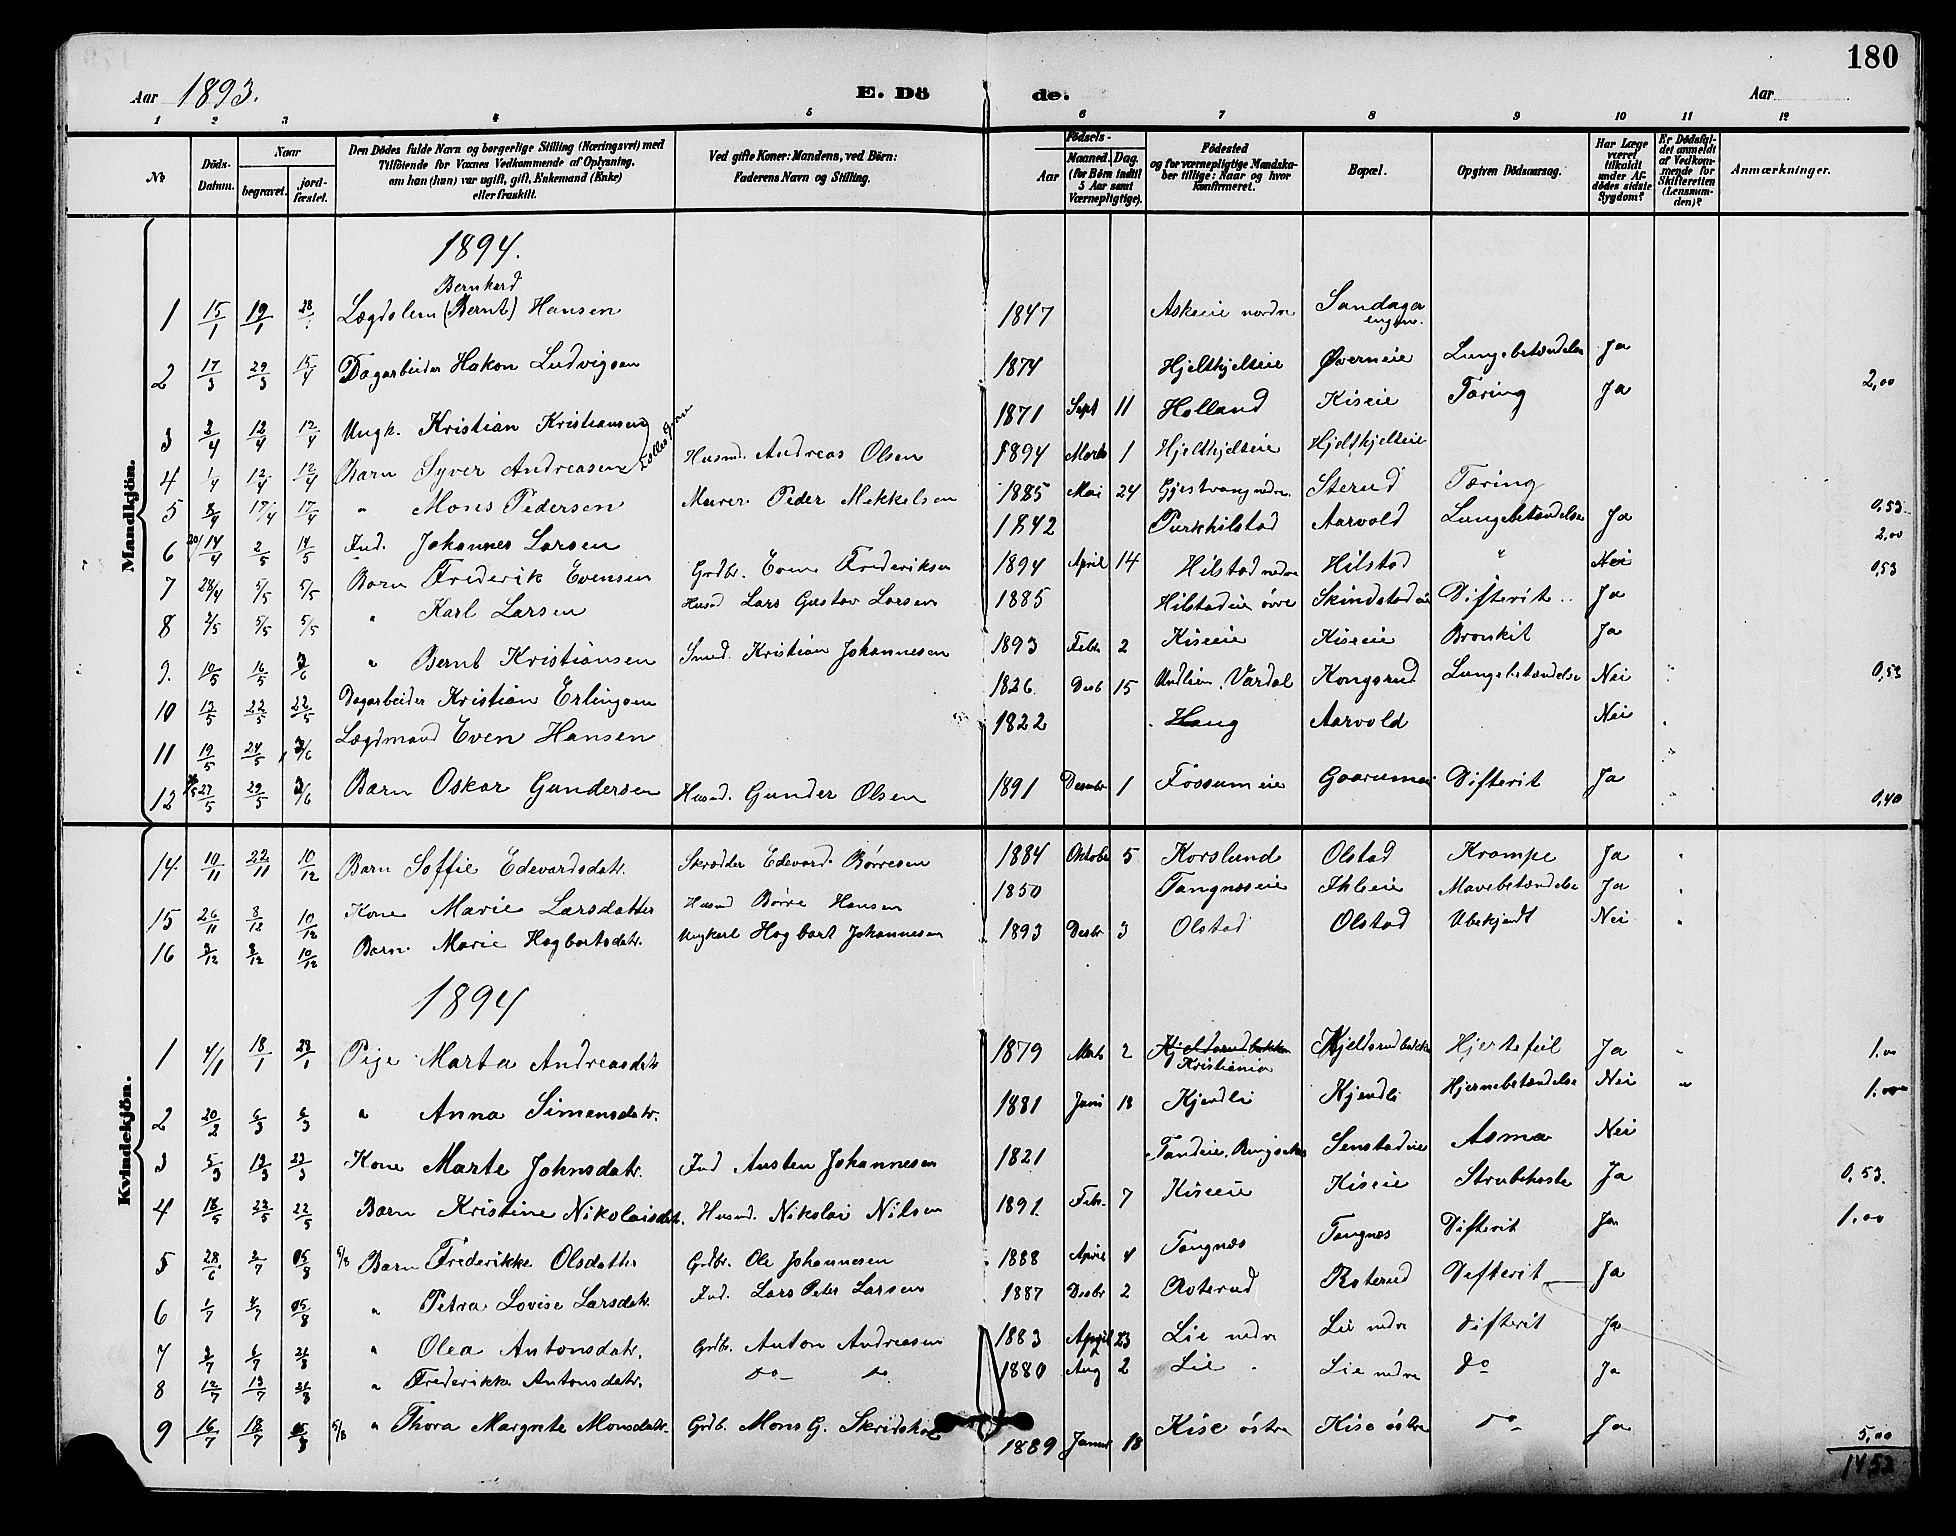 180
Aar 1893. E. Döde. Aar
1 2 3 4 5 6 7 8 9 10 11 12
No Döds-Datum. Naar begravet. jordfæstet. Den Dödes fulde Navn og borgerlige Stilling (Næringsvei) med Tilföiende for Voxnes Vedkommende af Oplysning, om han (hun) var ugift, gift, Enkemand (Enke) eller fraskilt. Ved gifte Koner: Mandens, ved Börn: Faderens Navn og Stilling. Födsels- Aar Maaned. Dag. (for Børn indtil 5 Aar samt Værnepligtige). Födested og for værnepligtige Mandskaber tillige: Naar og hvor konfirmeret. Bopæl. Opgiven Dödsaarsag. Har Læge været tilkaldt under Afdödes sidste Sygdom? Er Dödsfaldet anmeldt af Vedkommende for Skifteretten (Lensmanden)? Anmærkninger.
Mandkjön.
1894.
Bernhard
1 15/1 19/1 28/1 Lægdslem (Bernt) Hansen 1847 Askeie nordre Sandager engen.
2 17/3 29/3 15/4 Dagarbeider Hakon Ludvigsen 1874 Hjeltkjelteie Øverneie Lungebetændelse Ja 2,00
3 3/4 12/4 12/4 Ungk. Kristian Kristiansen 1871 Sept 11 Holland Kiseie Tæring Ja
4 1/4 12/4 12/4 Barn Syver Andreasen Husmd. Andreas Olsen 1894 Marts 1 Hjeltkjelteie Hjeltkjelteie
5 8/4 17/4 17/4 " Mons Pedersen Murer Peder Mekkelsen 1885 Mai 24 Gjestvang nedre Sterud Tæring 0,53
6 14/4 2/5 14/5 Ind. Johannes Larsen 1842 Purkhilstad Aarvold Lungebetændelse Ja 2,00
7 28/4 5/5 5/5 Barn Frederik Evensen Grdbr. Even Frederiksen 1894 April 14 Hilstad nedre Hilstad " Nei 0,53
8 2/5 5/5 5/5 " Karl Larsen Husmd Lars Gustav Larsen 1885 Hilstadeie övre Skindstadeie Difterit Ja
9. 10/5 16/5 3/6 " Bernt Kristiansen Smed. Kristian Johannesen 1893 Febr 2 Kiseie Kiseie Bronkit Ja
10 17/5 22/5 22/5 Dagarbeider Kristian Erlingsen 1826 Desb 15 Undlien, Vardal Kongsrud Lungebetændelse Nei 0,53
11 19/5 24/5 3/6 Lægdmand Even Hansen 1822 Haug Aarvold Nei
12 27/5 29/5 3/6 Barn Oskar Gundersen Husmd. Gunder Olsen 1891 Desember 1 Fossumeie Gaarumeie Difterit Ja 0,40
Kvindekjön.
14. 10/11 22/11 10/12 Barn Soffie Edevardsdatr. Skrædder Edevard Børresen 1884 Oktober 5 Korslund Olstad Krampe Ja
15 26/11 8/12 10/12 Kone Marie Larsdatter Husmd Børre Hansen 1850 Tangnæseie Ihleie Mavebetændelse Ja
16 3/12 8/12 10/12 Barn Marie Hagbartsdatr. Ungkarl Hagbart Johannesen 1893 Desbr 3 Olstad Olstad Ubekjendt Nei
1894
1 4/1 18/1 28/1 Pige Marta Andreasdatr 1879 Marts 2 Kjeldsrudbakken Kristiania Kjeldsrudbakken Hjertefeil Ja " 1.00
2 20/2 6/3 6/3 " Anna Simensdatr. 1881 Juni 18 Kjendli Kjendli Hjernebetændelse Nei " 1.00
3 5/3 13/3 23/3 Kone Marte Johnsdatr. Ind Austen Johannesen 1821 Tandeie, Ringsaker Senstadeie Asma Nei
4 16/5 22/5 22/5 Barn Kristine Nikolaisdatr. Husmd. Nikolai Nilsen 1891. Feb. 7 Kiseie Kiseie Strubehoste Ja 0,53.
5 28/6 2/7 5/8 Barn Frederikke Olsdatter Grdbr. Ole Johannesen 1888 April 4 Tangnæs Tangnæs Difterit Ja 1.00
6 1/7 4/7 5/8 " Petra Lovise Larsdatr. Ind. Lars Peter Larsen 1887 Desbr 2 Roterud Roterud Difterit Ja
7 3/7 6/7 21/8 " Olea Antonsdatr. Grdbr. Anton Andreasen 1883 April 23 Lie nedre Lie nedre Difterit Ja
8 12/7 13/7 21/8 " Frederikke Antonsdatr. Do Do 1880 Aug 2 Lie Lie nedre Do Ja
9 16/7 18/7 5/8 " Thora Margrete Monsdatr. Grdb. Mons G. Skridshol 1889 Januar 18 Kise östre Kise östre Do Ja 5,00
14,52